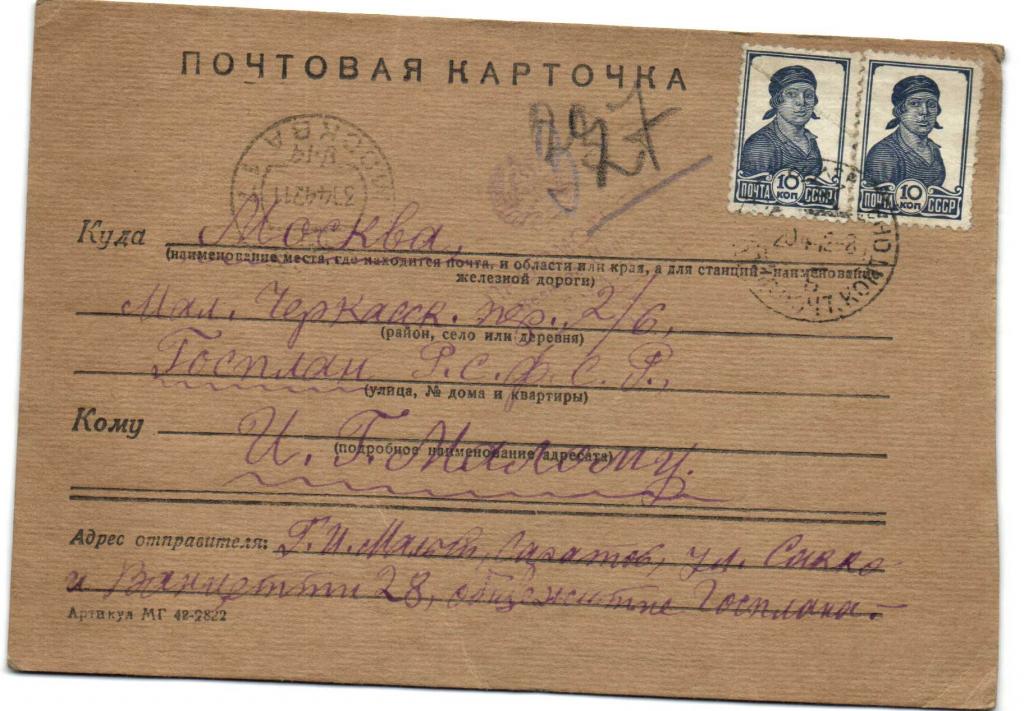 ПОЧТОВАЯ КАРТОЧКА
227
10 КОП ПОЧТА СССР
10 КОП ПОЧТА СССР
МОСКВА
Куда Москва,
(наименование места, где находится почта, и области или края, а для станций наименование
железной дороги)
Мал. Черкасск. пер., 2/6,
(район, село или деревня)
Госплан Р.С.Ф.С.Р.,
(улица, № дома и квартиры)
Кому И. Г. Малому.
(подробное наименование адресата)
Адрес отправителя: Г. И. Малый, Саратов, ул. Сакко
и Ванцетти 28, общежитие Госплана.
Артикул МГ 42-2822